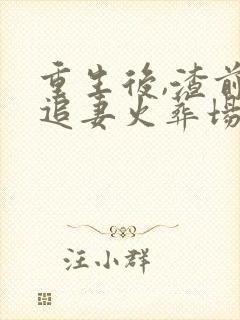 重生後,渣前
追妻火葬場
汪小群